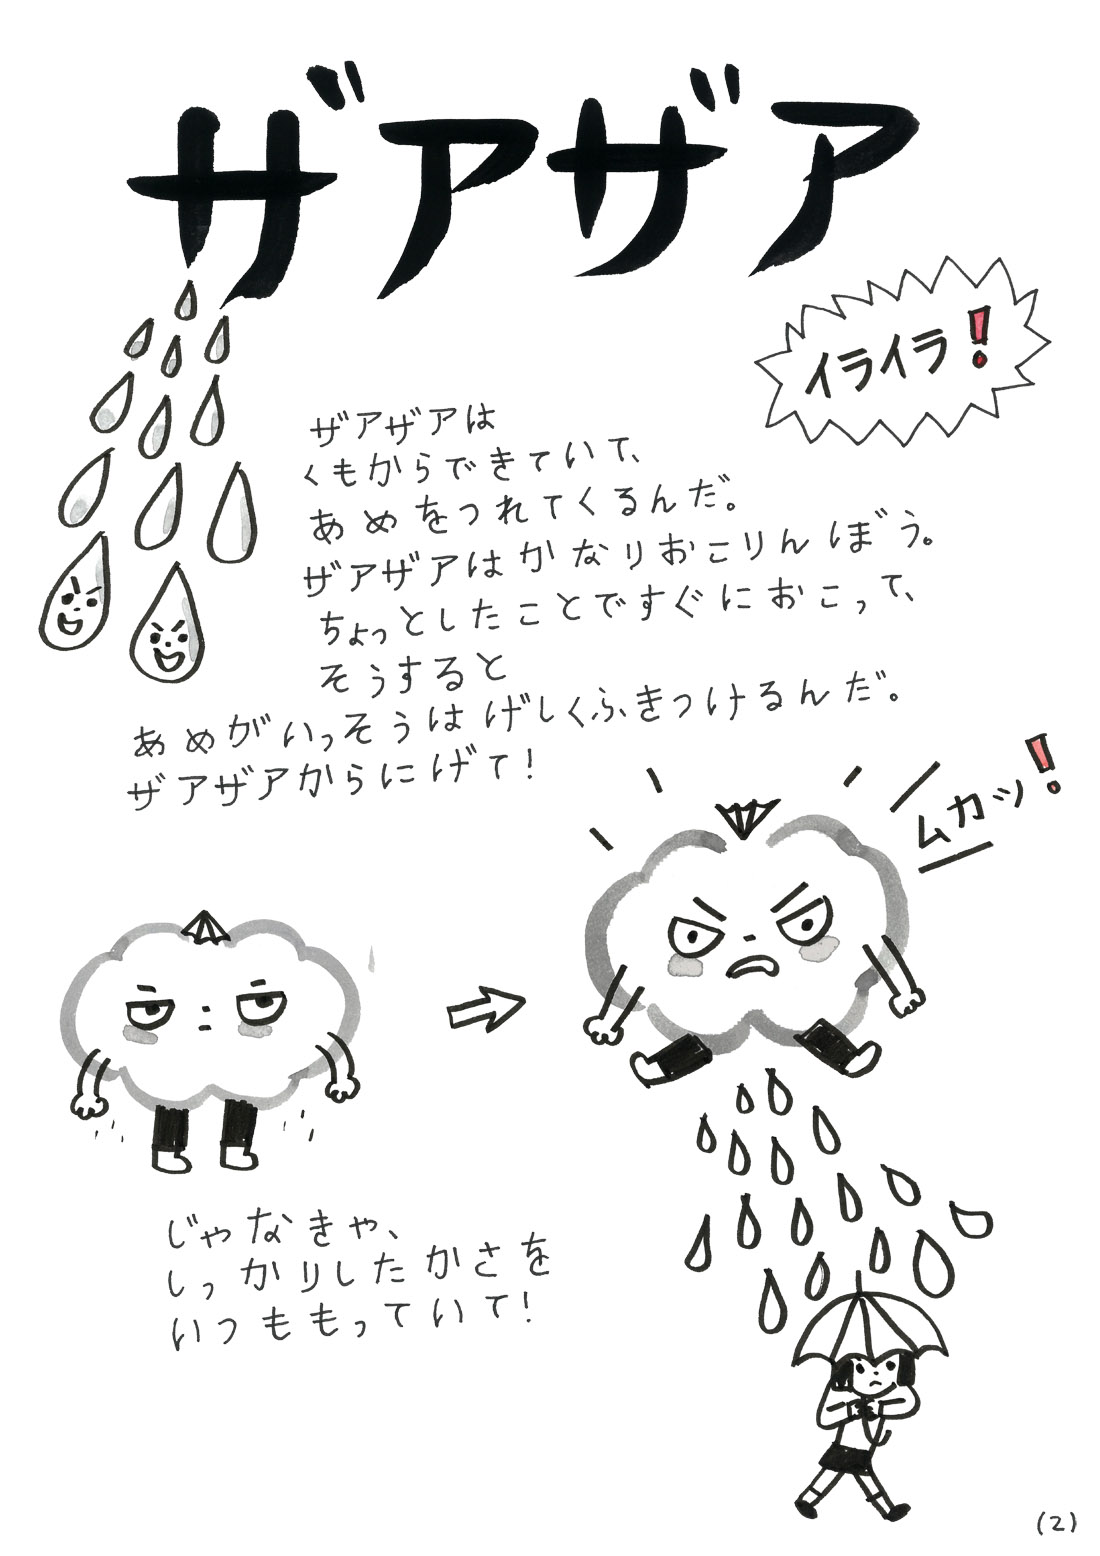 ザアザア
イライラ!
ザアザアは
くもからできていて、
あめをつれてくるんだ。
ザアザアはかなりおこりんぼう。
ちょっとしたことですぐにおこって、
そうすると
あめがいっそうはげしくふきつけるんだ。
ザアザアからにげて!
ムカッ!
じゃなきゃ、
しっかりしたかさを
いつももっていて!
(2)